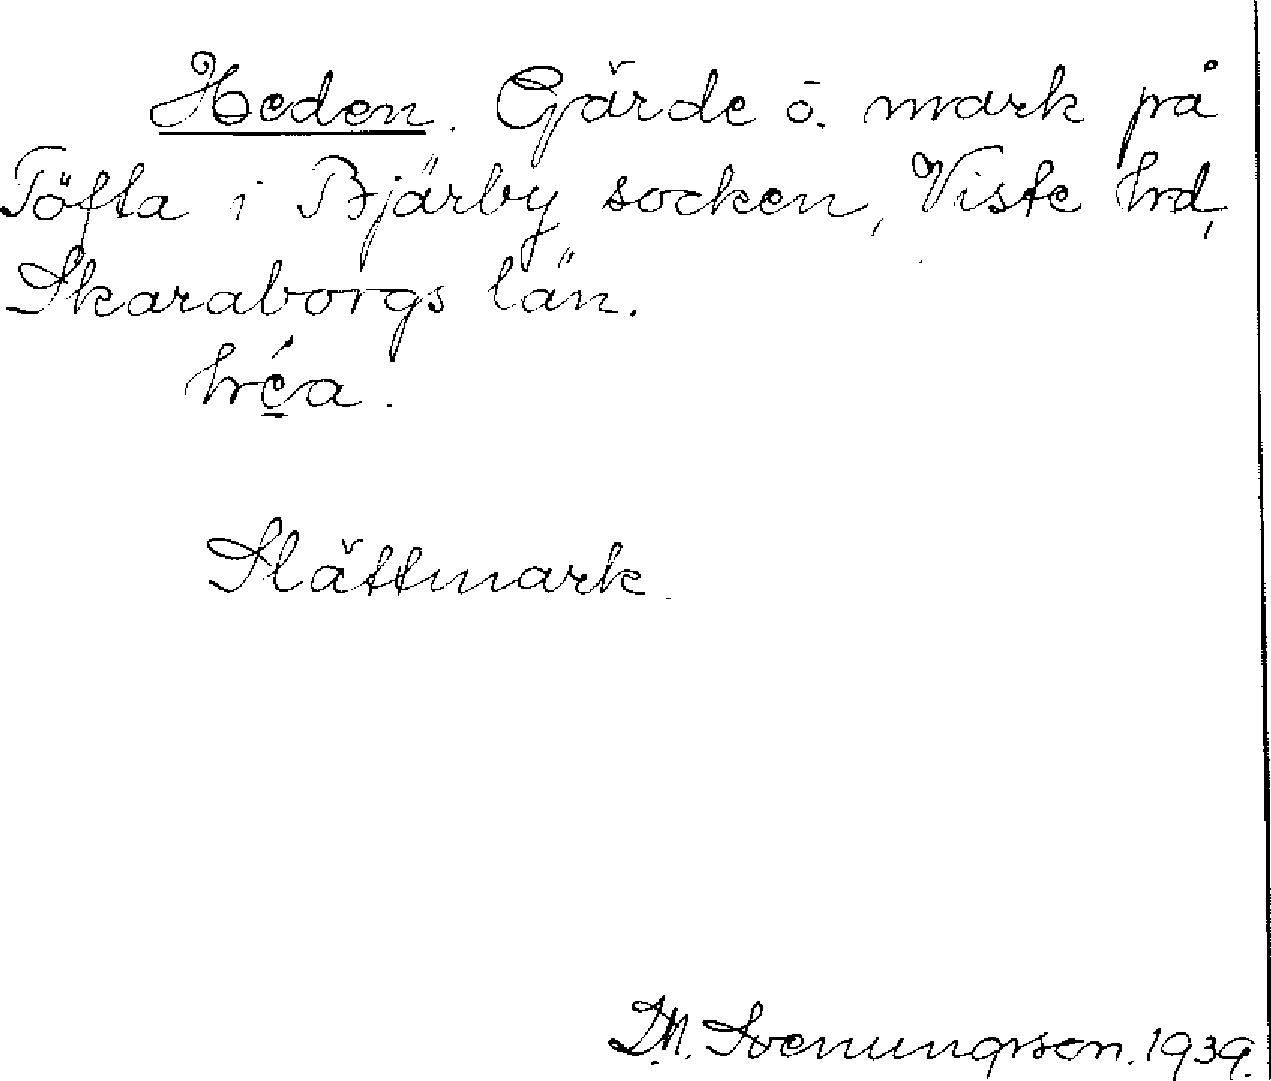 Heden. Gärde o. mark på
Töfta i Bjärby socken, Viste hrd,
Skaraborgs län.
Slättmark.
D.M. Svenungsson. 1939.